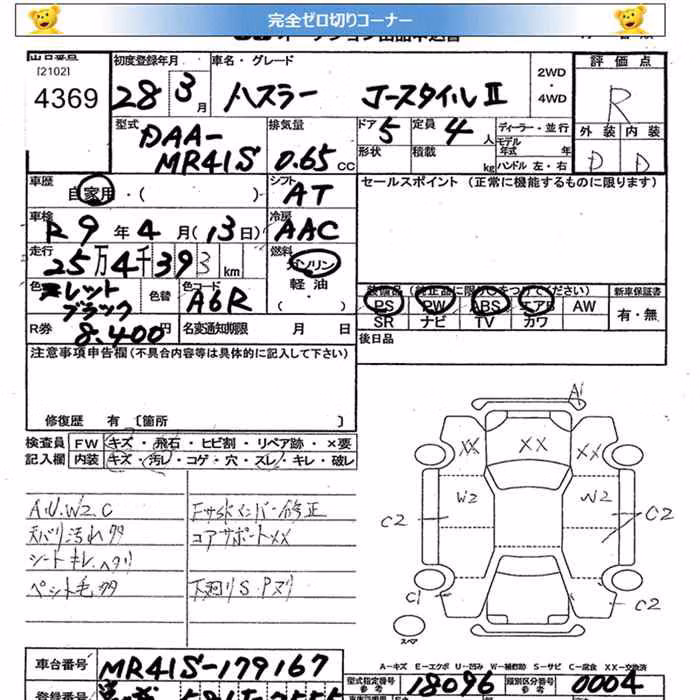 完全ゼロ切りコーナー
オークション出品申込書
出品番号
[2102]
4369
初度登録年月
28 3月
車名・グレード
ハスラー Jースタイル II
2WD・4WD
評価点
R
外装 内装
D D
型式
DAA-MR41S
排気量
0.65 CC
ドア 5
定員 4 人
形状
積載 kg
ディーラー・並行
モデル年式 年
ハンドル 左・右
車歴
自家用・( )
シフト
AT
セールスポイント (正常に機能するものに限ります)
車検
R 9 年 4 月 (13日)
冷房
AAC
走行
25万4千393 km
燃料
ガソリン
軽油
( )
レット
ブラック
色替
色コード
A6R
装備品 (純正品に限り○をつけてください)
PS PW ABS エアB AW
SR ナビ TV カワ
新車保証書
有・無
R券
8,400円
名変通知期限 月 日
後日品
注意事項申告欄(不具合内容等は具体的に記入して下さい)
修復歴 有 〔箇所 〕
検査員 FW キズ・飛石・ヒビ割・リペア跡・×要
記入欄 内装 キズ・汚レ・コゲ・穴・スレ・キレ・破レ
A.U.W2.C
天バリ汚れ多
シートキレ.ヘタリ
ペット毛多
Fサイドメンバー修正
コアサポートXX
下廻りS.Pヌリ
A1
XX XX XX
W2 W2
C2 C2
C1 C2
スペア
A-キズ E-エクボ U-凹み W-補修跡 S-サビ C-腐食 XX-交換済
車台番号
MR41S-179167
型式指定番号
参考
18096
類別区分番号
参考
0004
登録番号